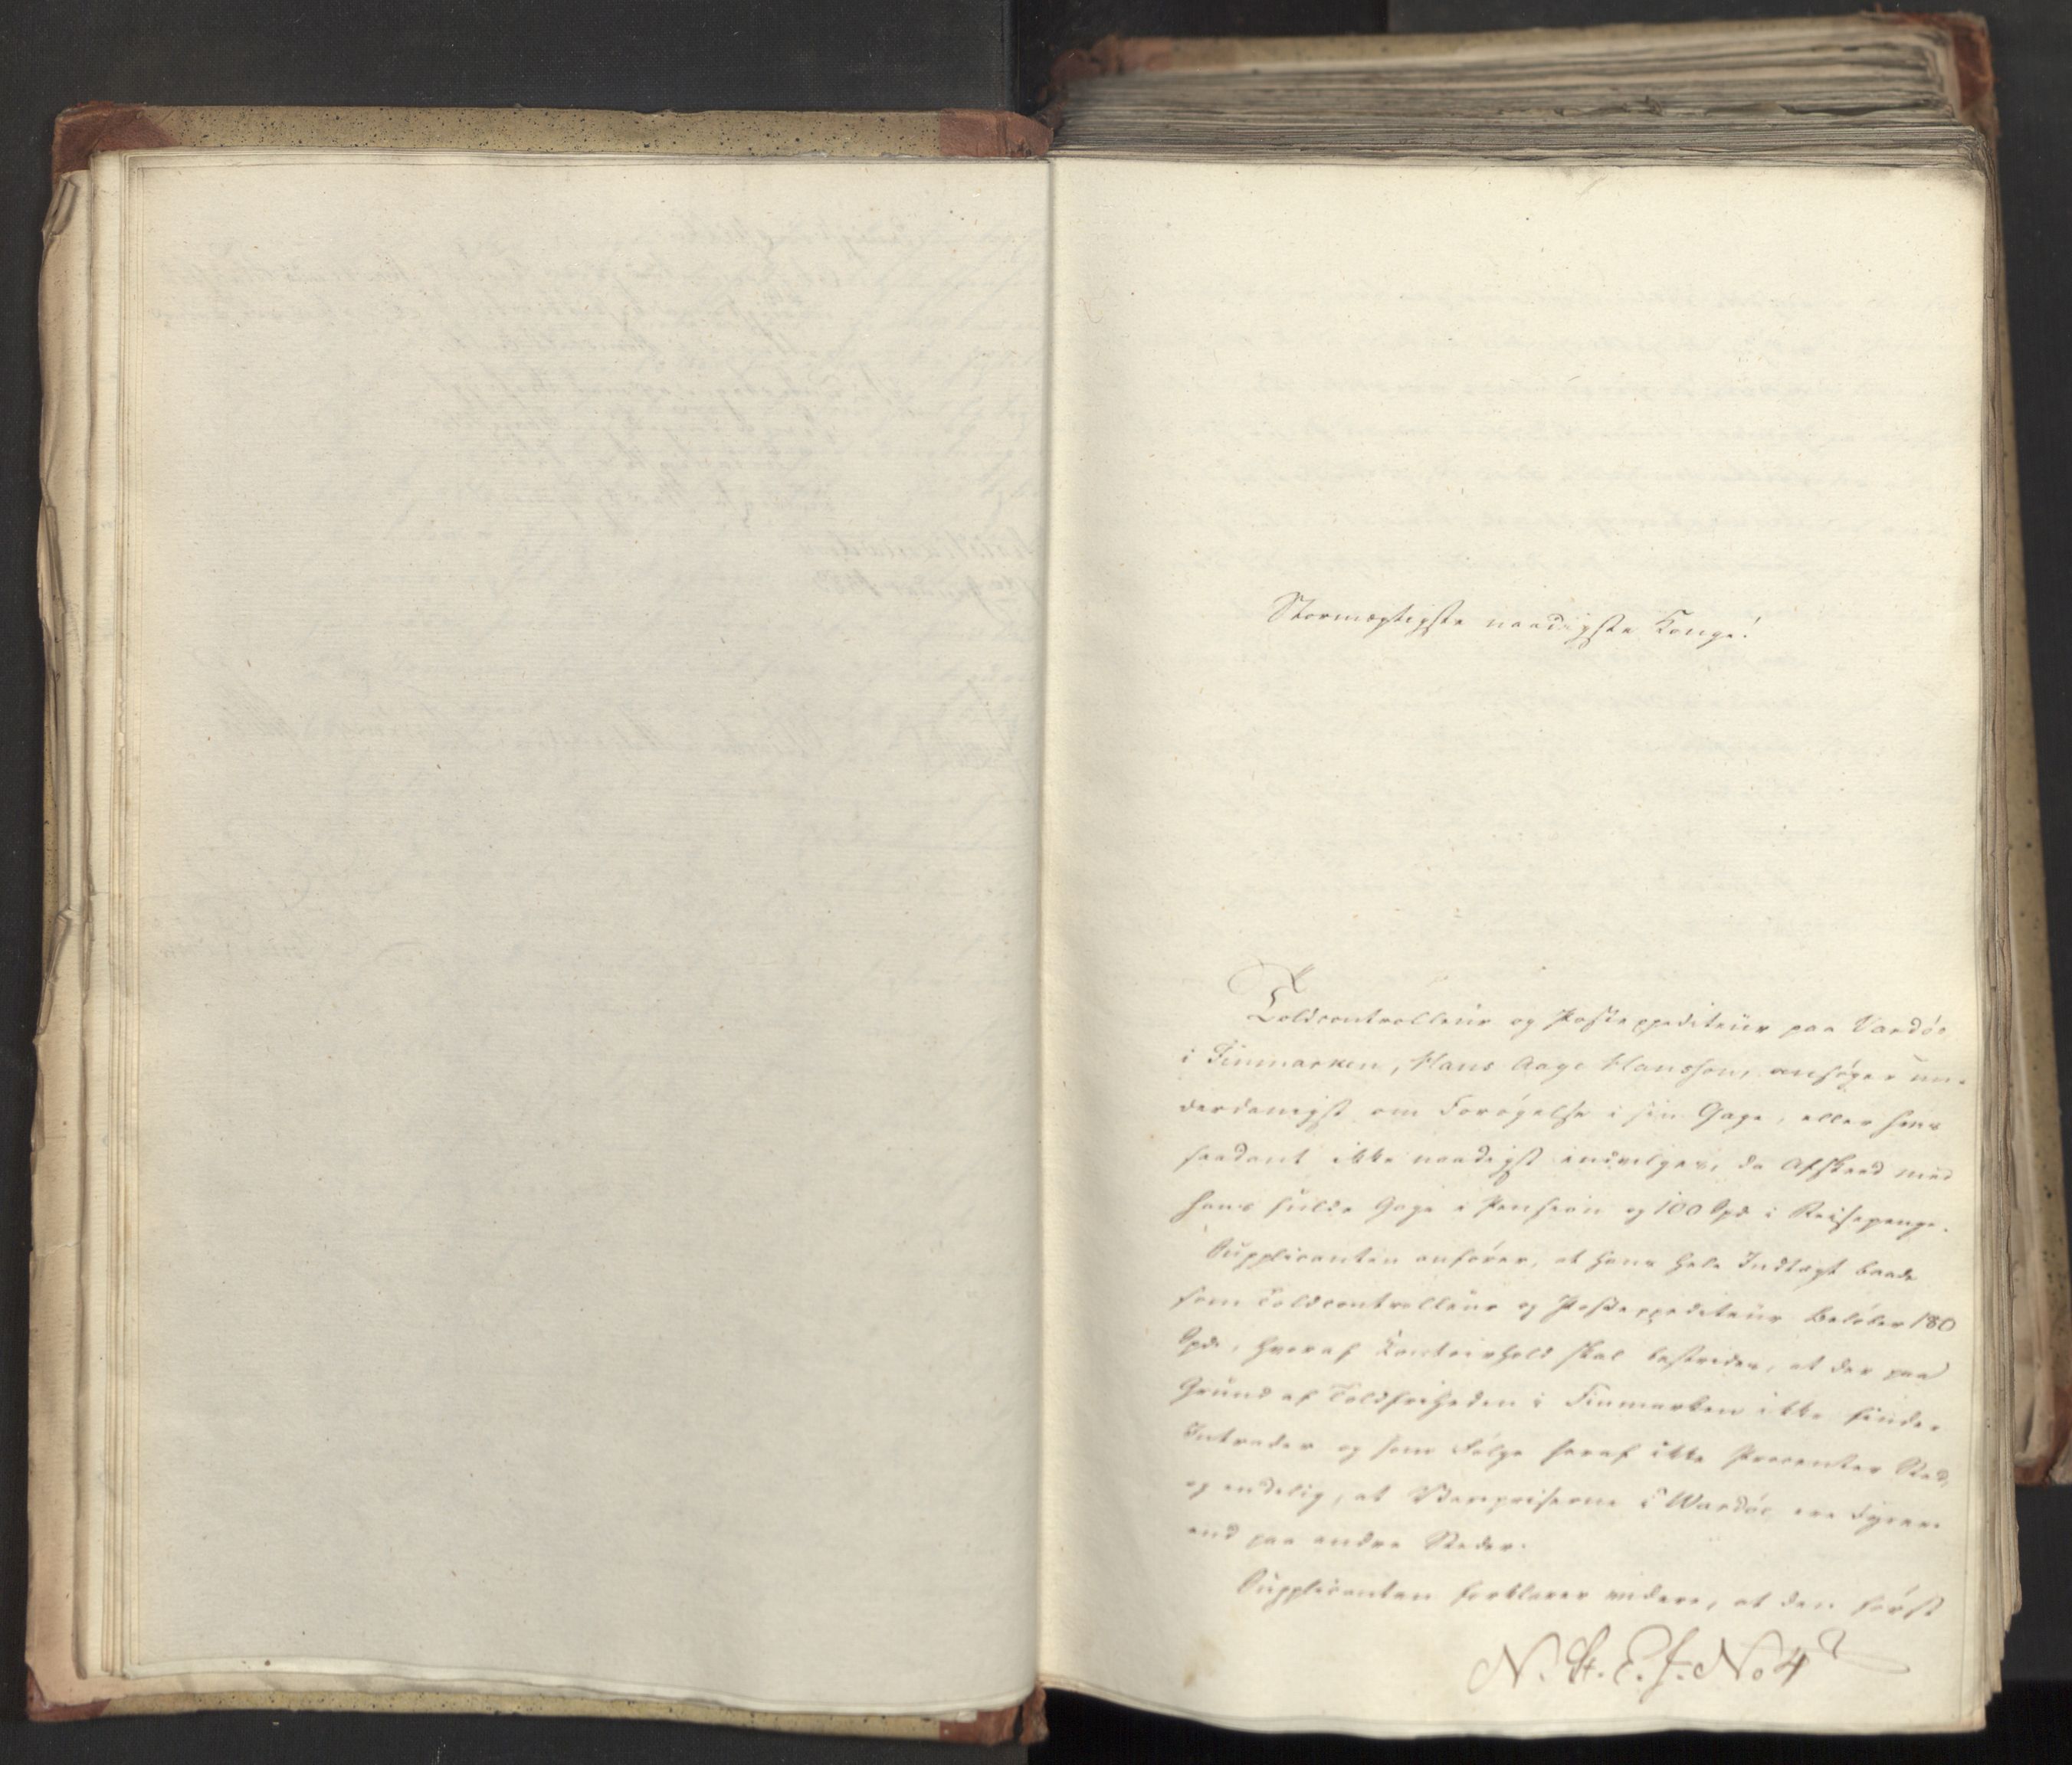 Stormægtigste naadigste Konge!
Toldcontrolleur og Postexpediteur paa Vardöe
i Finmarken, Hans Aage Hansson, ansöger un-
derdanigst om Forögelse i sin Gage, eller hvis
saadant ikke naadigst indvilges, da Afskeed med
hans fulde Gage i Pension og 100 Spd i Reisepenge.
Supplicanten anförer, at hans hele Indtægt baade
som Toldcontrolleur og Postexpediteur belöber 180
Spd, hvoraf Contoirhold skal bestrides, at der paa
Grund af Toldfriheden i Finmarken ikke finder
Intrader og som Fölge heraf ikke Procenter Sted,
og endelig, at Varepriserne i Wardöe ere dyrere
end paa andre Steder.
Supplicanten forklarer videre, at den först
N. St. E. J. No 4